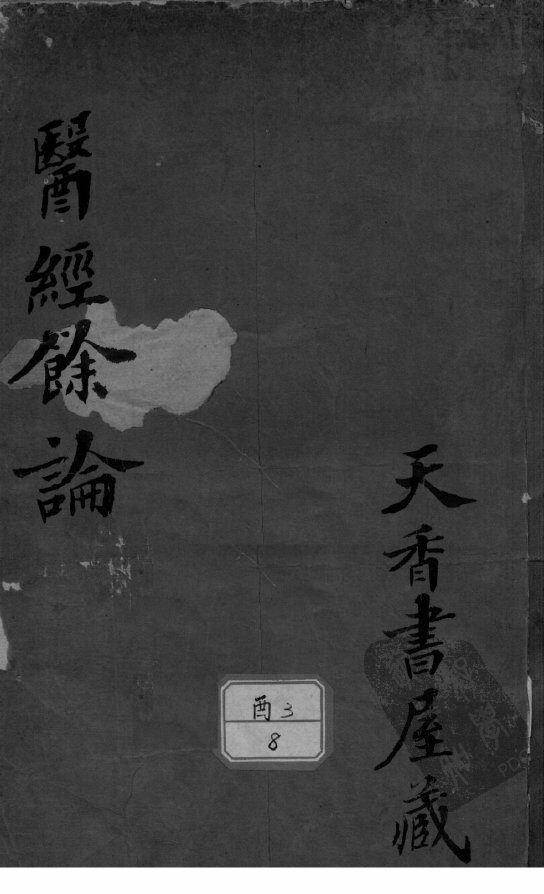 醫經餘論
天香書屋藏
酉3
8